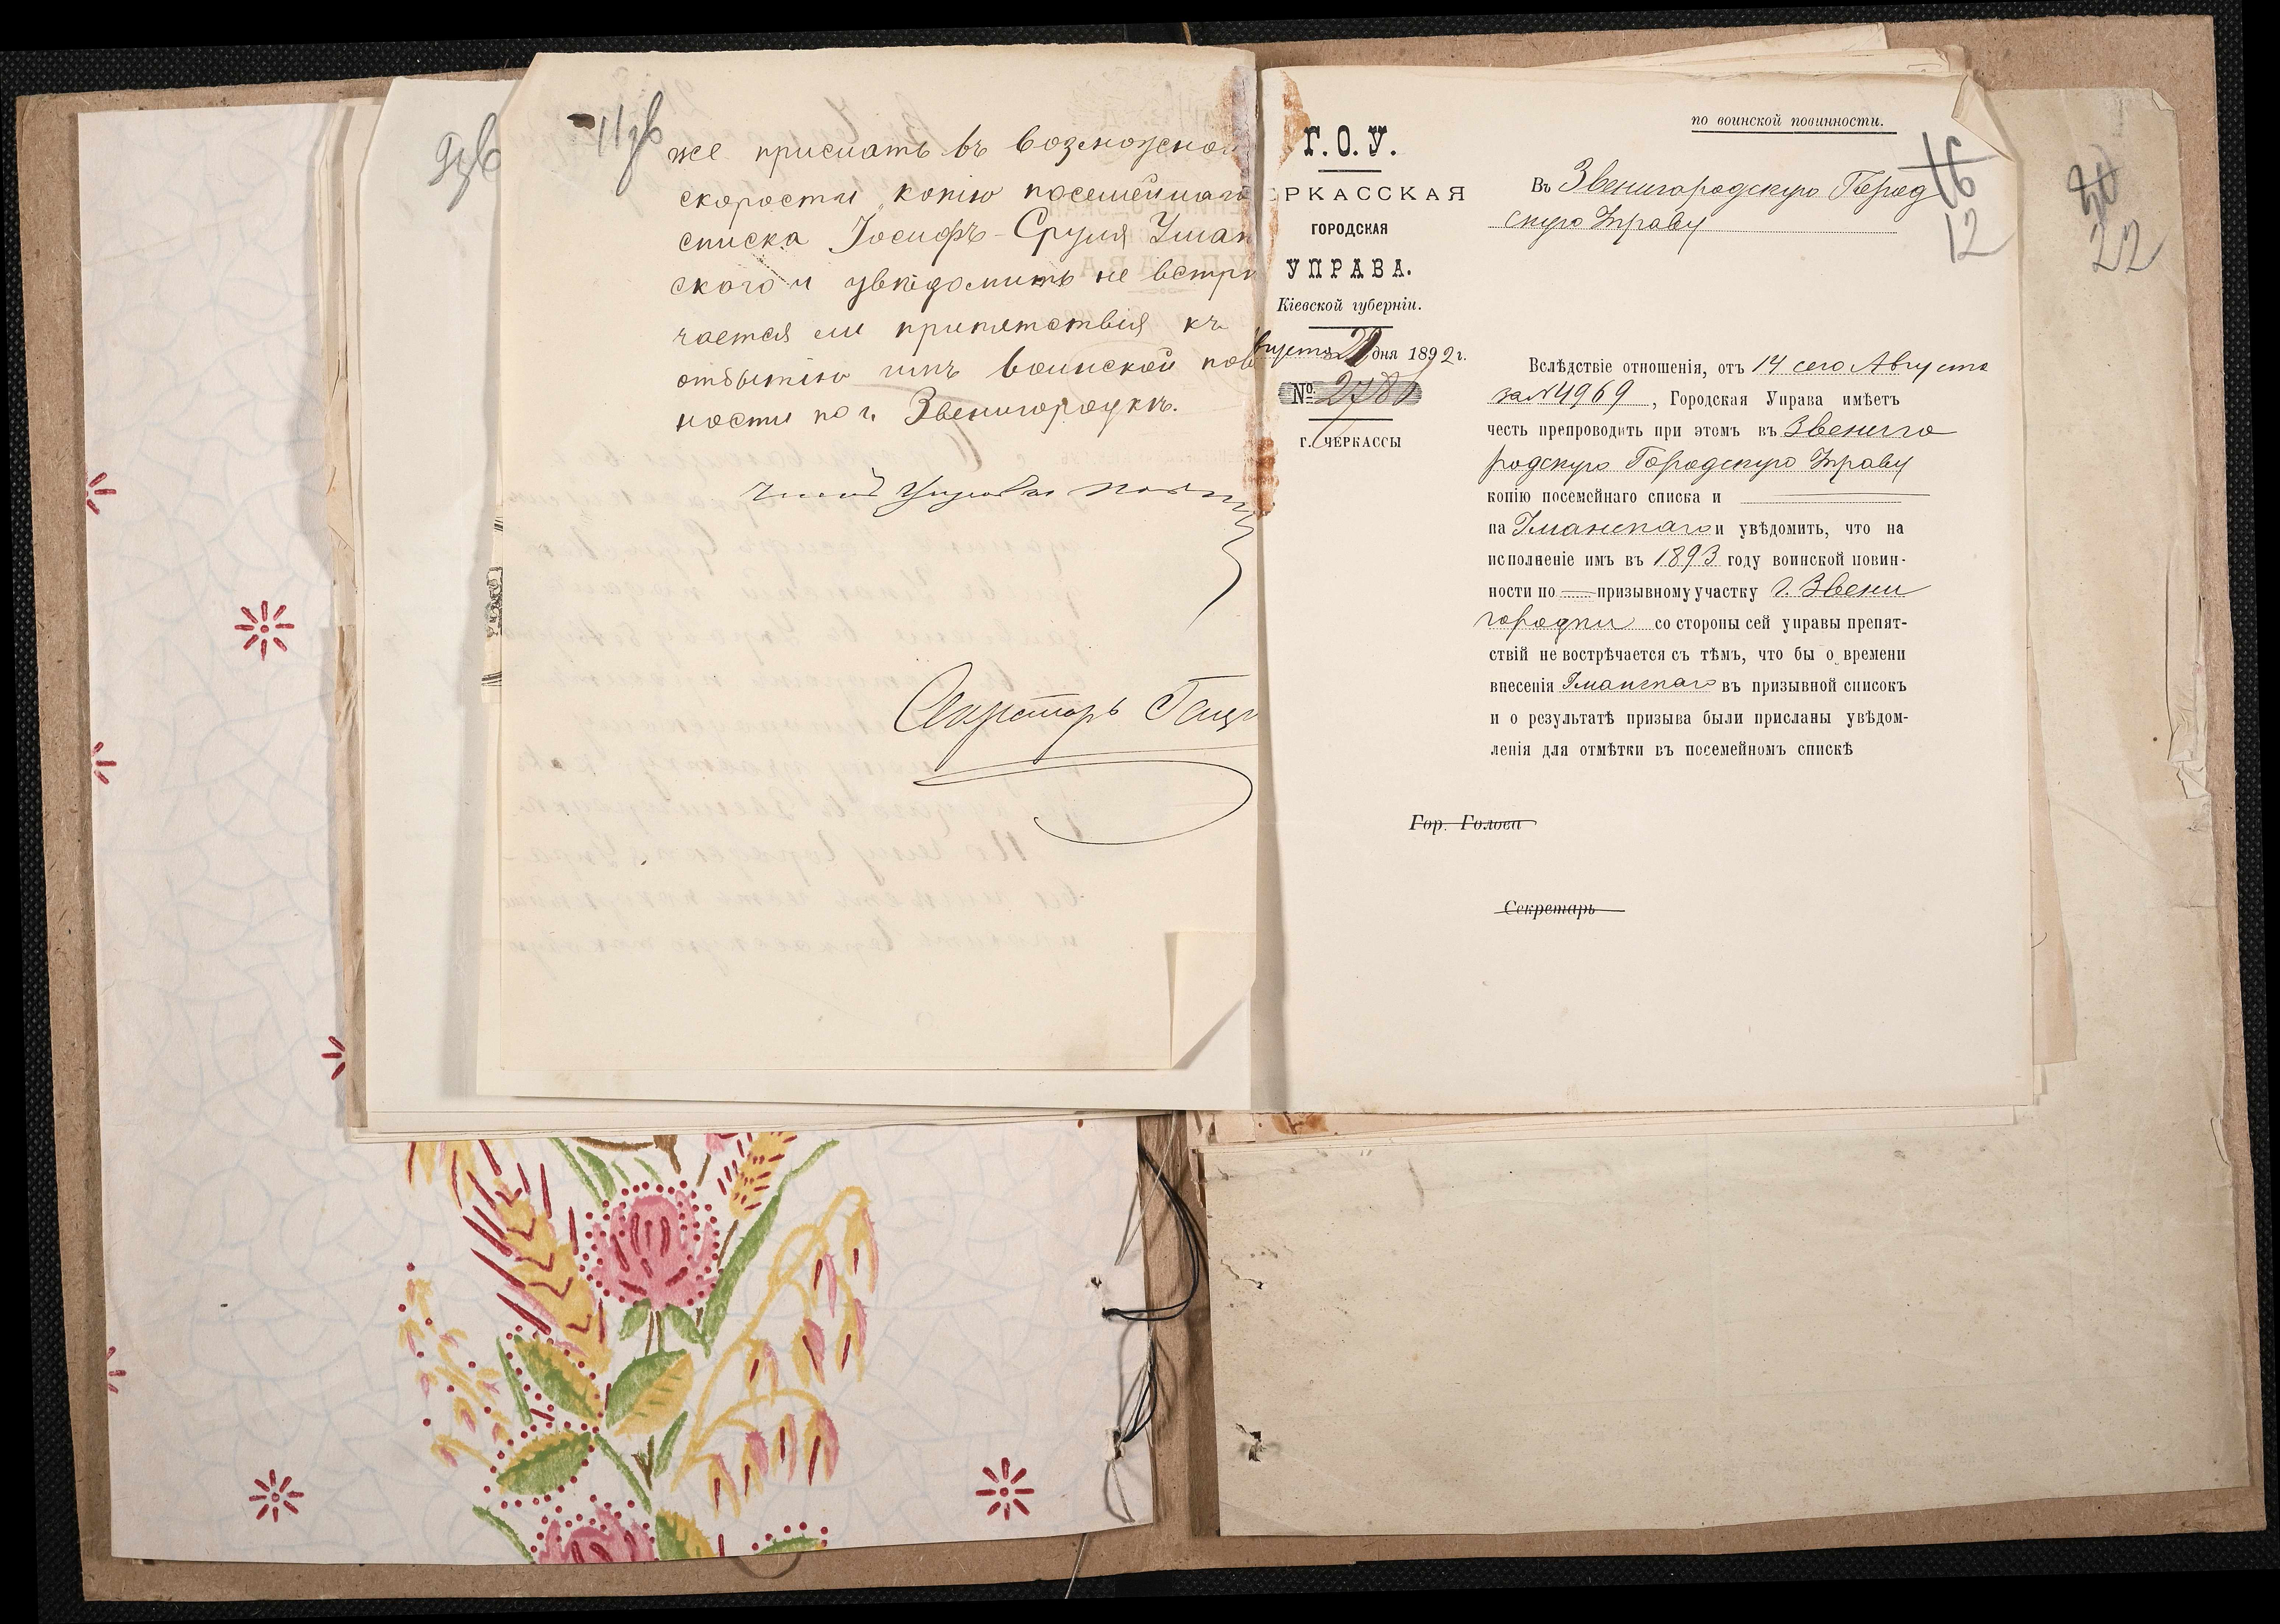 11зв
же прислать въ возможной
скорости копію посемейнаго
списка Іосифъ-Сруля Уман
скаго и увѣдомить не встрѣ
чается ли припятствія къ
отбытію имъ воинской пов
ности по г. Звенигородкѣ.
Членъ Управы
Секретарь
Г.О.У.
РКАССКАЯ
ГОРОДСКАЯ
УПРАВА.
Кіевской губерніи.
Августа дня 1892 г.
№ 2781
г. ЧЕРКАССЫ
по воинской повинности.
16
12
Въ Звенигородскую Город
скую Управу
Вслѣдствіе отношенія, отъ 14 сего Августа
за № 4969, Городская Управа имѣетъ
честь препроводить при этомъ въ Звениго
родскую Городскую Управу
копію посемейнаго списка и
на Уманскаго и увѣдомить, что на
исполненіе имъ въ 1893 году воинской повин-
ности по призывному участку г. Звени
городки со стороны сей управы препят-
ствій не вострѣчается съ тѣмъ, что бы о времени
внесенія Уманскаго въ призывной списокъ
и о результатѣ призыва были присланы увѣдом-
ленія для отмѣтки въ посемейномъ спискѣ
Гор. Голова
Секретарь
22